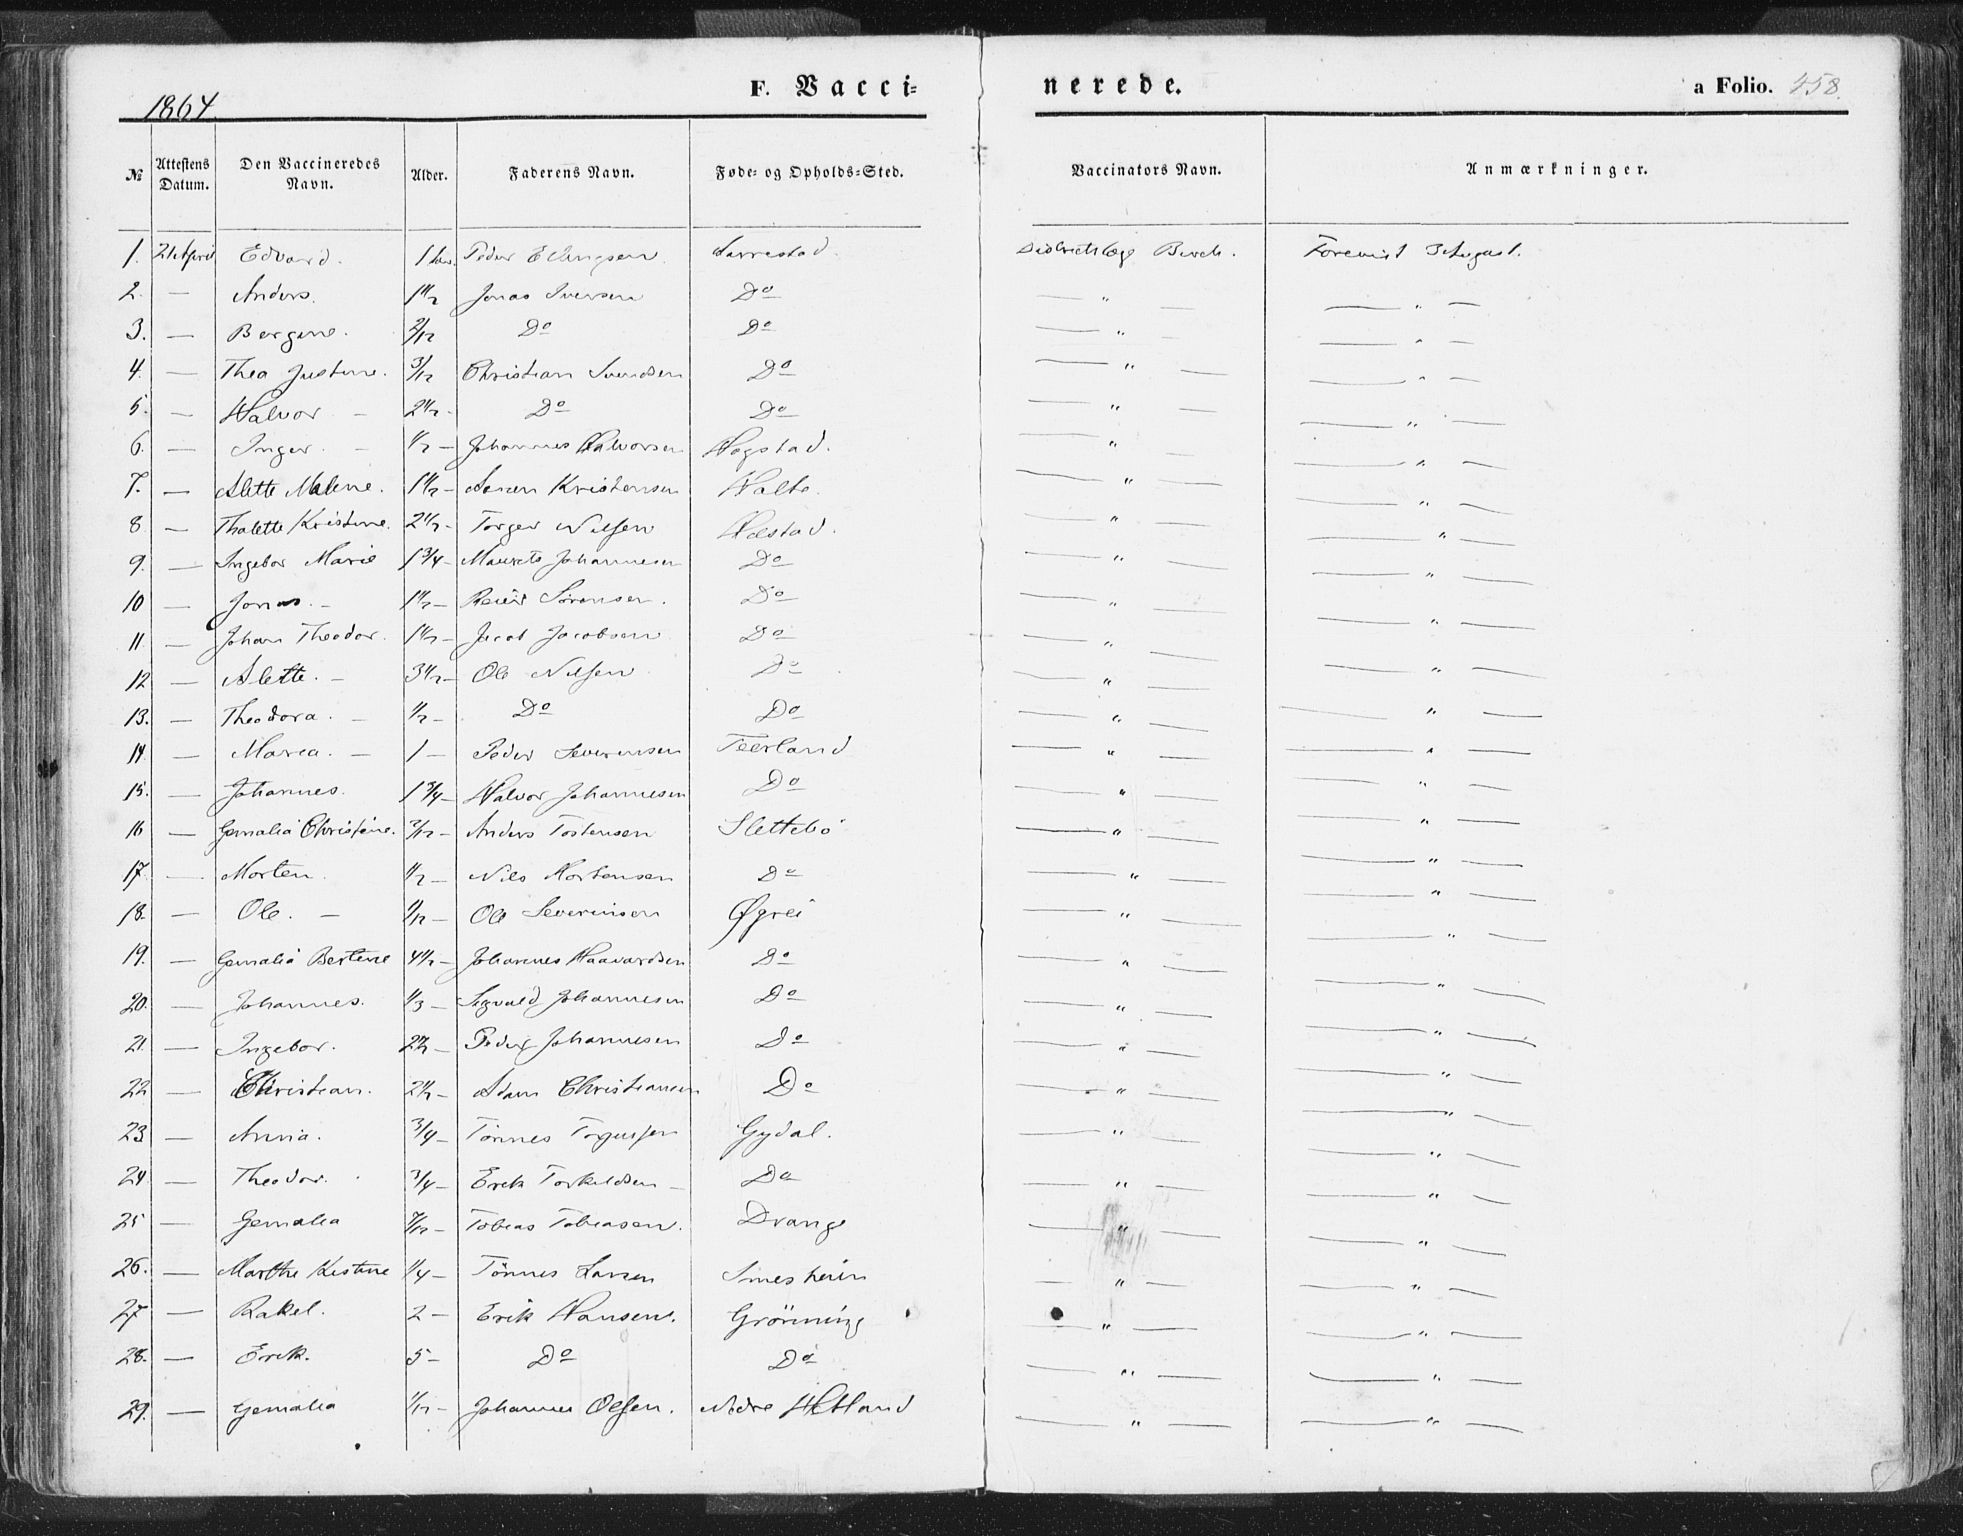 1864
F. Vacci-
nerede.
a Folio. 458.
№ Attestens Datum. Den Vaccineredes Navn. Alder. Faderens Navn. Føde- og Opholds-Sted. Vaccinators Navn. Anmærkninger.
1. 21 April Edvard. 1 Peder Larrestad. Districtslæge Birch. Foreviist 3 August.
2. — Anders. 1 1/2 Jonas Iversen Do — " — — " —
3. — Bergine. 2/12 Do Do — " — — " —
4. — Thea Justine. 3/12 Christian Svendsen Do — " — — " —
5. — Halvor — 2 1/2 - Do Do — " — — " —
6. — Inger. — 1/2 — Johannes Halvorsen Hogstad. — " — — " —
7. — Alette Malene. 1 1/2 — Søren Kristensen — " — — " —
8 — Thalette Kristine. 2 1/2 - Torger Nilsen Hæstad. — " — — " —
9. — Ingebor Marie 1 3/4 — Maurits Johannesen Do — " — — " —
10 — Jonas. — 1 1/2 — Reier Sörensen. Do — " — — " —
11. — Johan Theodor. 1 1/2 — Jacob Jacobsen Do — " — — " —
12 — Alette. — 3 1/2 — Ole Nilsen Do — " — — " —
13. — Theodora. — 1/2 — Do Do — " — — " —
14 — Maria. — 1 — Peder Severinsen Teerland — " — — " —
15. — Johannes. 1 3/4 — Halvor Johannesen Do — " — — " —
16 — Gemalia Christine. 2/12 — Anders Tostensen Slettebö — " — — " —
17. — Morten. 1/2 — Nils Mortensen Do — " — — " —
18. — Ole. — /12 — Ole Severinsen Øgrei — " — — " —
19. — Gemalia Bertine 4 1/2 — Johannes Haavardsen Do — " — — " —
20. — Johannes. 1/3 — Sigvald Johannesen Do — " — — " —
21. — Ingebor. 2 1/2 — Peder Johannesen Do — " — — " —
22 — Christian. 2 1/2 — Adam Christiansen Do — " — — " —
23 — Anna. 3/4 — Tönnes Torgusen Gydal. — " — — " —
24 — Theodor. 3/4 — Erek Torkeldsen — Do — " — — " —
25 — Gemalia 7/12 — Tobias Tobiasen. Drange — " — — " —
26. — Marthe Kistine 1/4 — Tönnes Larsen — " — — " —
27 — Rakel. 2 — Erik Hansen. Grönning — " — — " —
28. — Erek. 5 — Do Do — " — — " —
29. — Gemalia 1/12 — Johannes Olsen. Nedre Hetland — " — — " —